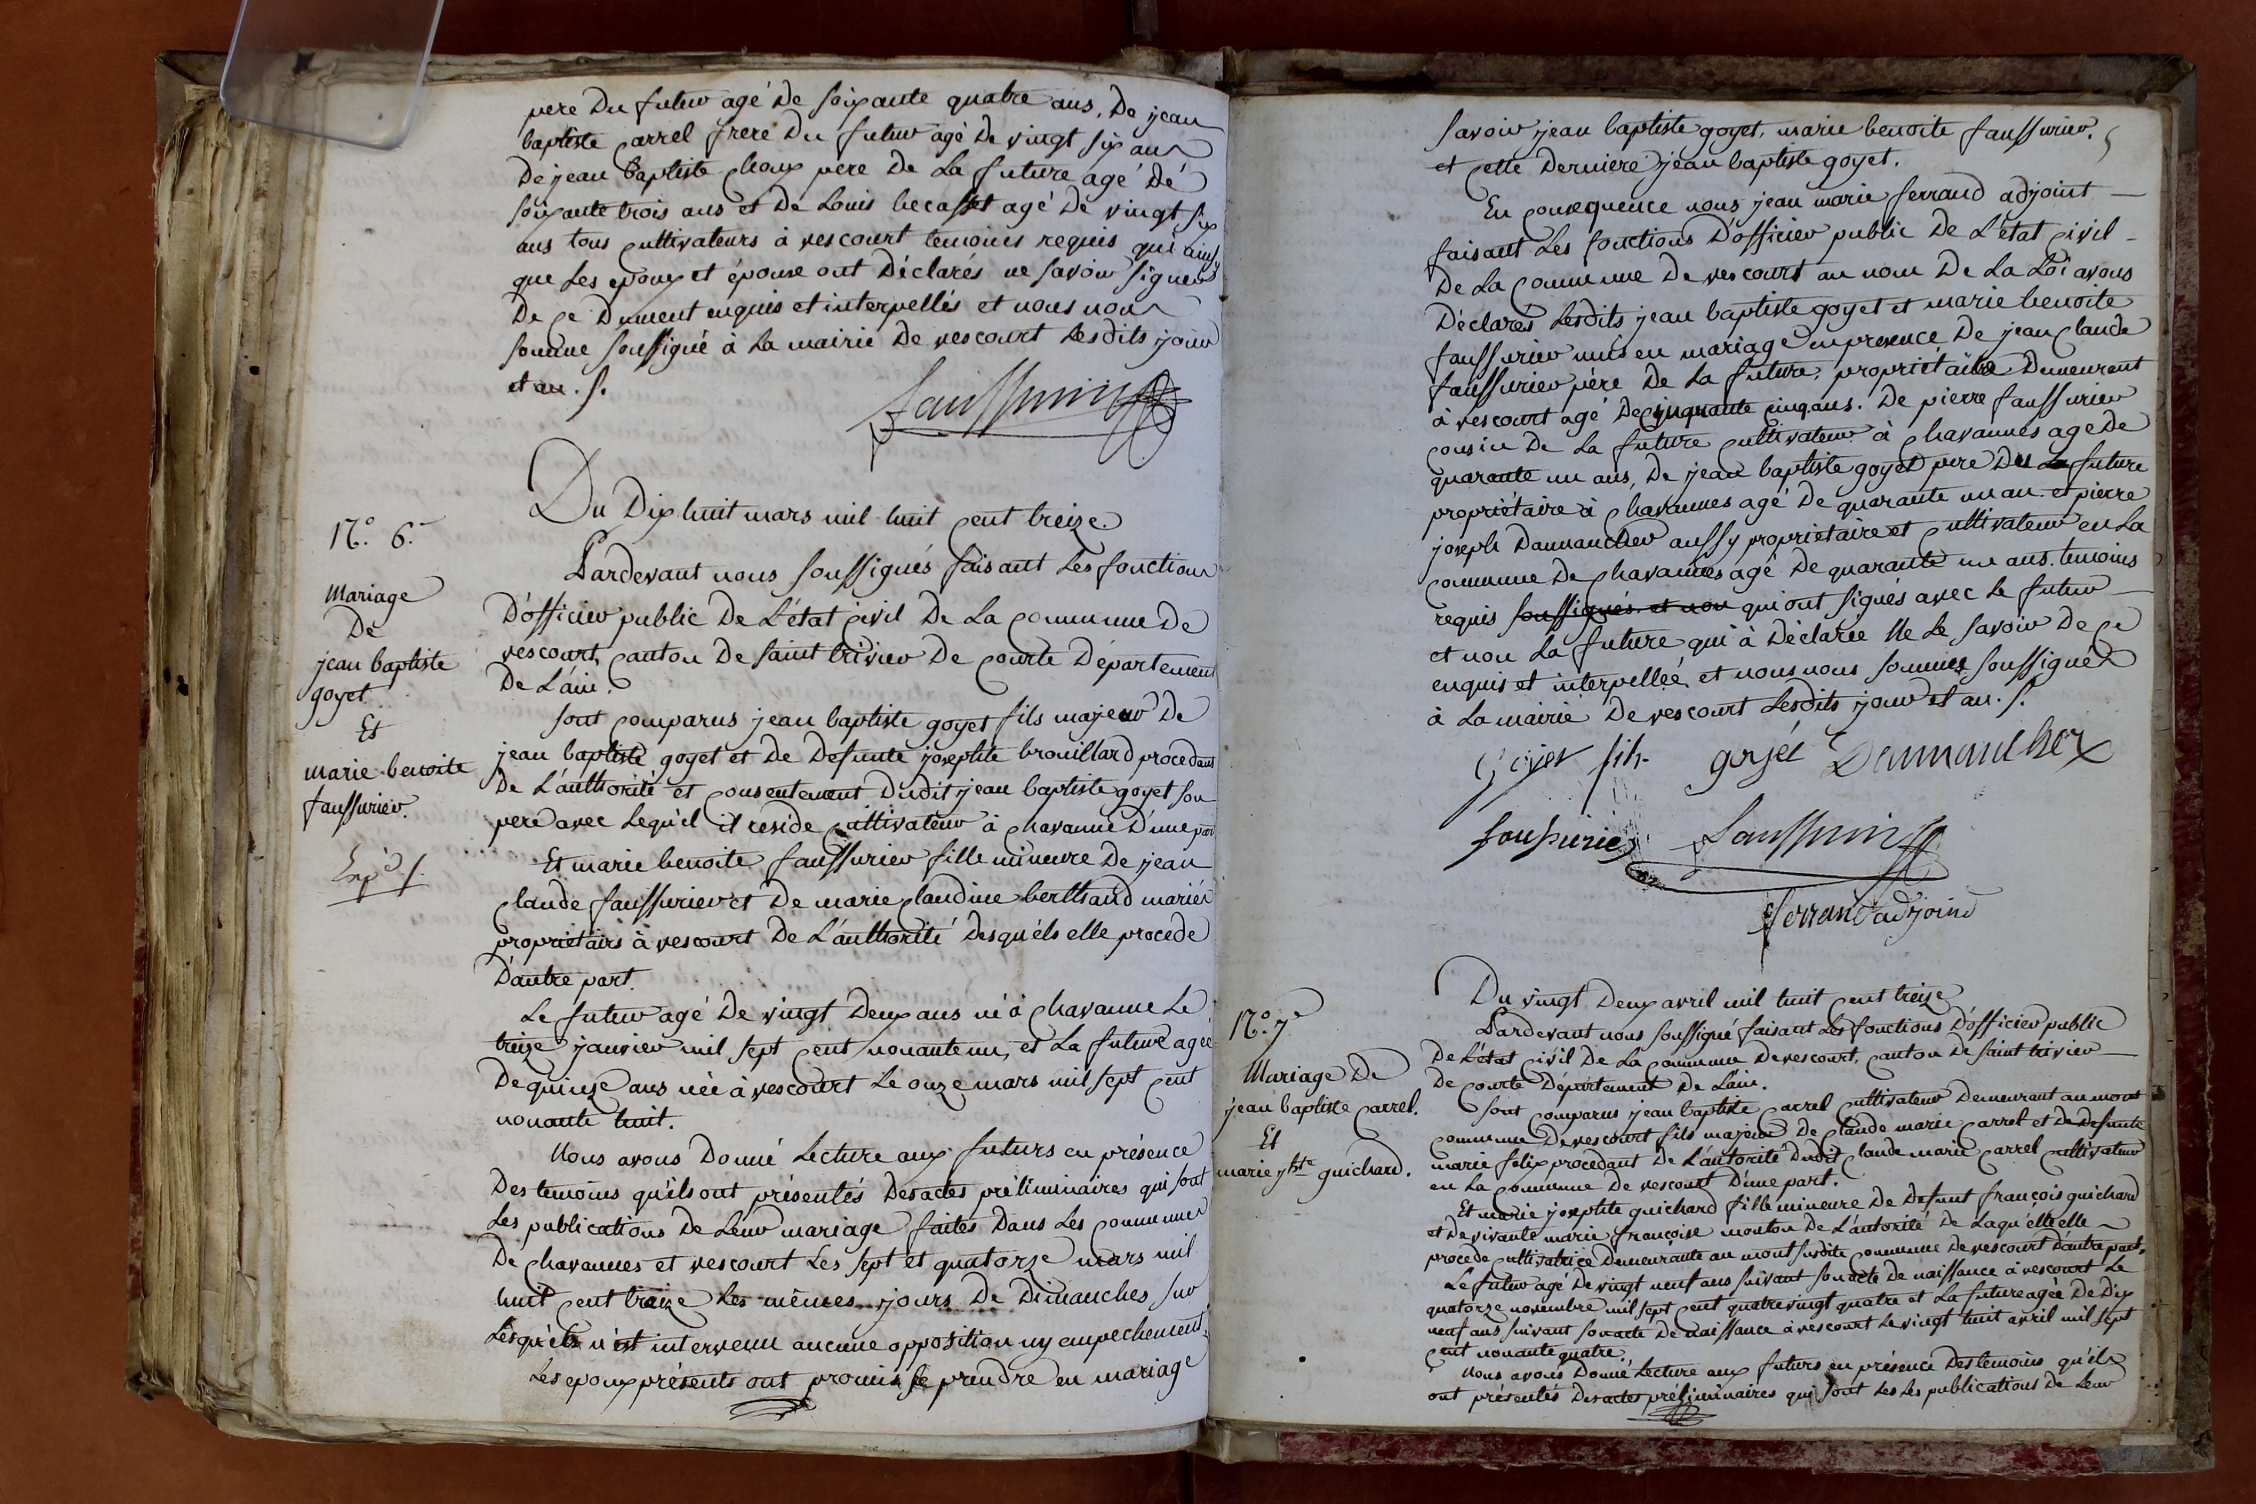 pere Du futur agé De soixante quatre ans, De jean
baptiste carrel frere Du futur agé De vingt six ans
De jean baptiste choux père De La future agé De
soixante trois ans et De Louis becasset agé De vingt six
ans tous cultivateurs à vescourt temoins requis qui ainsy
que Les epoux et épouse ont Déclarés ne savoir signer
De ce Dument enquis et interpellés et nous nous
somme soussigné à La mairie De vescourt Lesdits jour
et an. /.
faussurier
N.° 6.e
Mariage
De
jean baptiste
goyet
Et
marie benoite
faussurier.
Exp.d /.
Du Dix huit mars mil huit cent treize.
Pardevant nous soussignés faisant Les fonctions
D'officier public De L'état civil De La commune De
vescourt, canton De saint trivier De courte Département
De L'ain.
sont comparus jean baptiste goyet fils majeur De
jean baptiste goyet et De Defunte josephte brouillard procedant
De L'authorité et consentement Dudit jean baptiste goyet son
pere avec Lequ'el il reside cultivateur à chavanne D'une part
Et marie benoite faussurier fille mineure De jean
claude faussurier et De marie claudine berthand mariés
propriétairs à vescourt De L'authorité Desqu'els elle procede
D'autre part.
Le futur agé De vingt Deux ans né à chavanne Le
treize janvier mil sept cent nonante un, et La future agée
De quinze ans née à vescourt Le onze mars mil sept cent
nonante huit.
Nous avons Donné Lecture aux futurs en présence
Des temoins qu'ils ont présentés Des actes préliminaires qui sont
Les publications De Leur mariage faites Dans Les communes
De chavannes et vescourt Les sept et quatorze mars mil
huit cent treize Les mêmes jours De Dimanches sur
Lesqu'els n'est intervenu aucune opposition ny empechement.
Les epoux présents ont promis se prendre en mariage
savoir jean baptiste goyet, marie benoite faussurier.
et cette Derniere jean baptiste goyet.
En consequence nous jean marie ferrand adjoint
faisant Les fonctions D'officier public De L'état civil
De La commune De vescourt au nom De La Loi avons
Déclarés Lesdits jean baptiste goyet et marie benoite
faussurier unis en mariage en presence De jean claude
faussurier père De La future, propriétaire Demeurant
à vescourt agé De cinquante cinq ans. De pierre faussurier
cousin De La future cultivateur à chavannes age De
quarante un ans, De jean baptiste goyet pere Du La future
propriétaire à chavannes agé De quarante un an et pierre
joseph Dannancher aussy proprietaire et cultivateur en La
commune De chavannes agé De quarante un ans. temoins
requis soussignés et non qui ont signés avec Le futur
et non La future qui à Déclarée Ne Le savoir De ce
enquis et interpellée et nous nous sommes soussignés
à La mairie De vescourt Lesdits jour et an. /.
Goyet fils goyet Dannancher
fausurier faussurier
ferrand adjoint
N.° 7.e
Mariage De
jean baptiste carrel.
Et
marie jhte guichard.
Du vingt Deux avril mil huit cent treize
Pardevant nous soussigné faisant Les fonctions D'officier public
De L'état civil De La commune De vescourt, canton De saint trivier
De courte Département De L'ain.
sont comparus jean baptiste carrel cultivateur Demeurant au mont
commune De vescourt fils majeur De claude marie carrel et De Defunte
marie felix procedant De L'autorité Dudit claude marie carrel cultivateur
en La commune De vescourt D'une part.
Et marie josephte guichard fille mineure De Defunt françois guichard
et De vivante marie françoise mouton De L'autorité De Laqu'elle elle
procede cultivatrice Demeurante au mont susdite commune De vescourt D'autre part.
Le futur agé De vingt neuf ans suivant son acte De naissance à vescourt Le
quatorze novembre mil sept cent quatre vingt quatre et La future agée De Dix
neuf ans suivant son acte De naissance à vescourt Le vingt huit avril mil sept
cent nonante quatre.
Nous avons Donné Lecture aux futurs en présence Des temoins qu'ils
ont présentés Des actes préliminaires qui sont Les Les publications De Leur